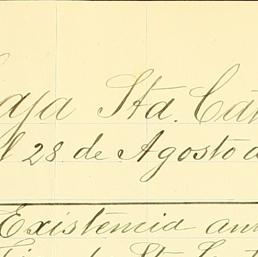 Caja Sta. Cat
l 28 de Agosto d
Existencia ant